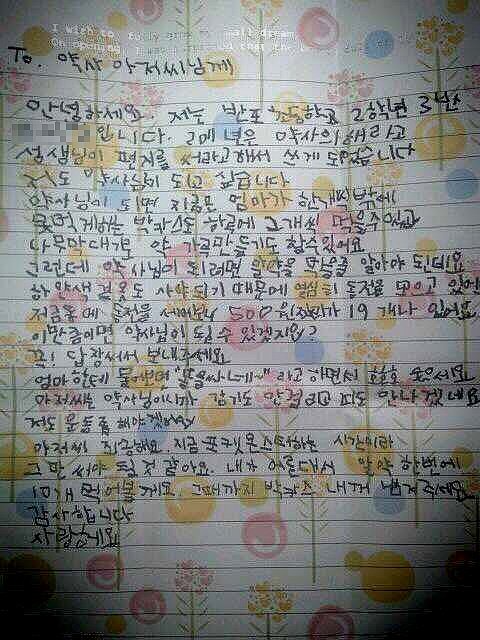 I wish to
On opening
To. 약사 아저씨님께
안녕하세요. 저는 반포 초등학교 2학년 3반
입니다. 그메 년은 약사의 해라고
선생님이 편지를 써라고 해서 쓰게 되었습니다
저도 약사님이 되고 싶습니다
약사님이 되며 지금도 엄마가 한개씩밖에
못먹게하는 박카스도 하루에 2개씩 먹을수있고
나무막대로 약 가루만들기도 할수있어요
그런데 약사님이 되려면 알약을 먹을줄 알아야 된데요
하얀색 겉옷도 사야되기 때문에 열심히 동전을 모으고 있어요
저금통에 동전을 세어보니 500원짜리가 19개나 있어요
이만큼이면 약사님이 될수 있겠지요?
꼭! 답장써서 보내주세요
엄마한테 물어보면 "딸랑 싸네~"라고 하면서 호호호 웃으세요
아저씨는 약사님이니까 감기도 안걸리고 피도 안나겠네요
저도 운동을 해야겠어요
아저씨 죄송해요. 지금 포켓몬스터하는 시간이라
그만 써야 될것 같아요. 내가 어른돼서 알약 한번에
1개 먹어볼께요. 그때까지 박카스 내꺼 남겨주세요
감사합니다
사랑해요